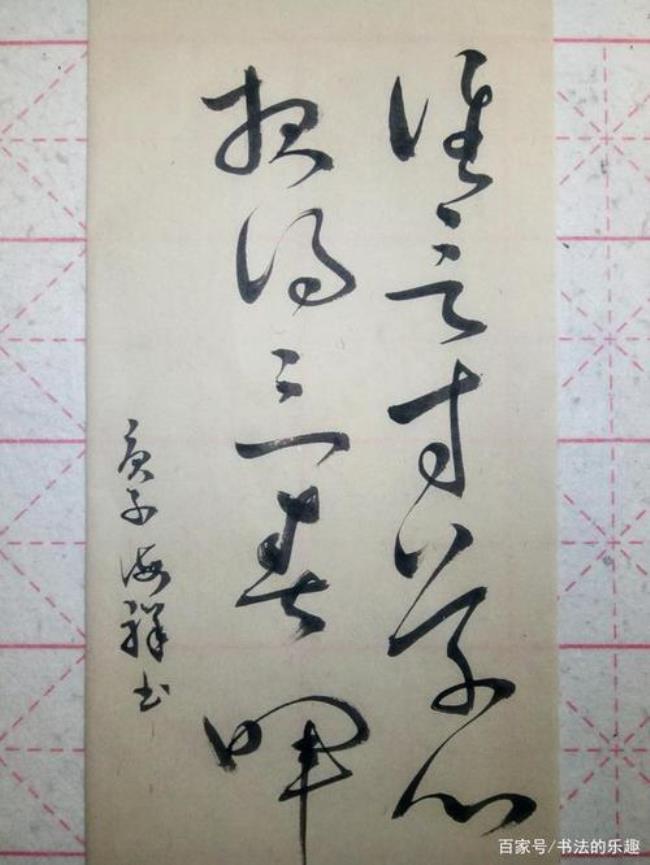 谁言寸草心
报得三春晖
庚子海祥书
百家号/书法的乐趣